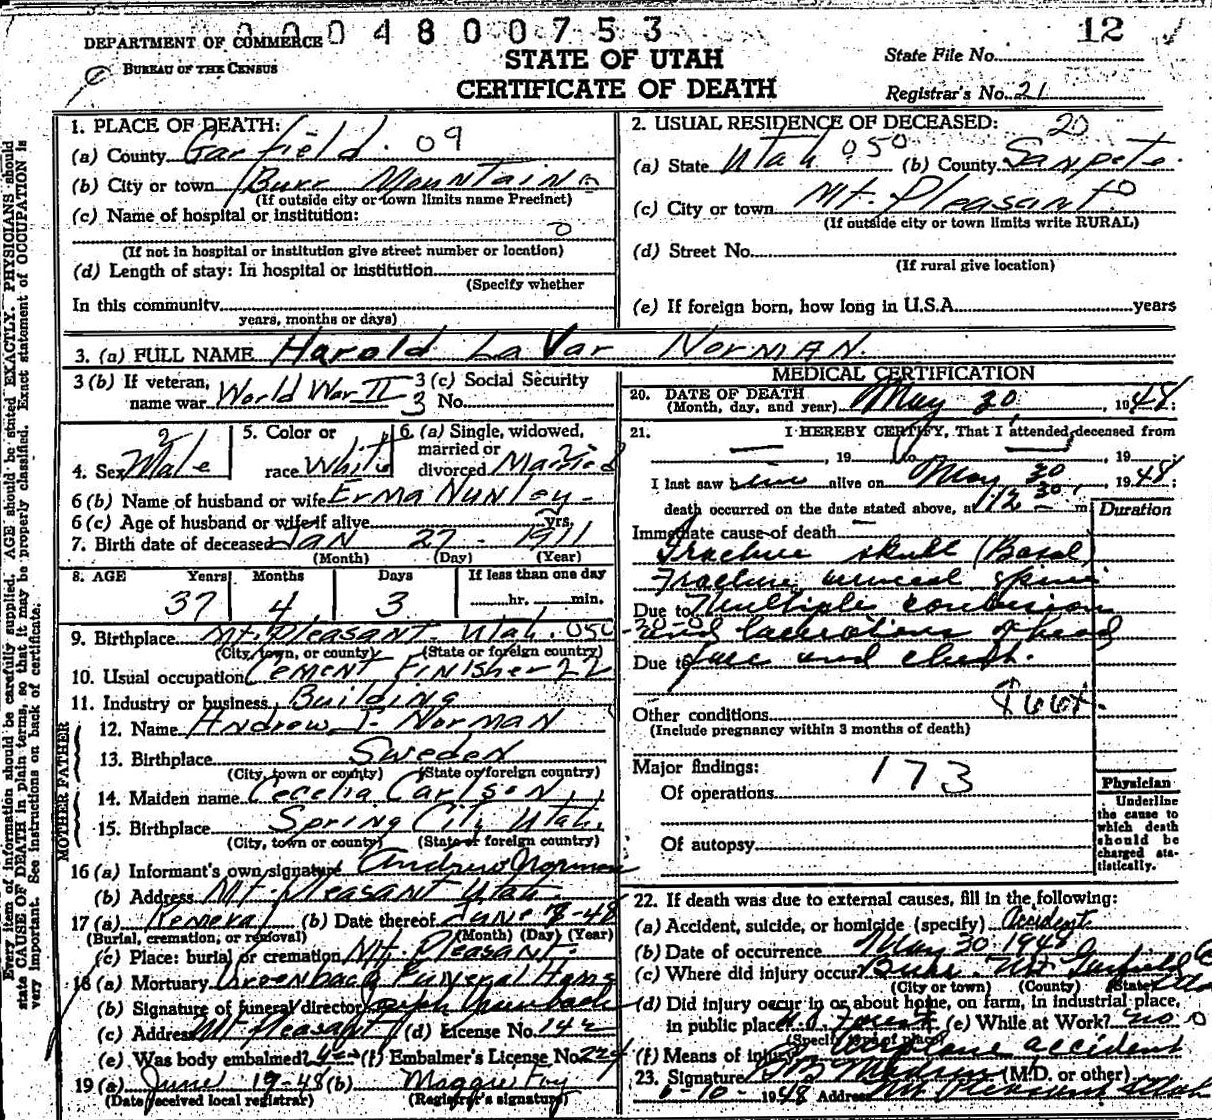 0004800753
12
DEPARTMENT OF COMMERCE
BUREAU OF THE CENSUS
STATE OF UTAH
CERTIFICATE OF DEATH
State File No.
Registrar's No. 21
Every item of information should be carefully supplied. AGE should be stated EXACTLY. PHYSICIANS should
state CAUSE OF DEATH in plain terms, so that it may be properly classified. Exact statement of OCCUPATION is
very important. See instructions on back of certificate.
1. PLACE OF DEATH:
(a) County Garfield. 09
(b) City or town Burr Mountains
(If outside city or town limits name Precinct)
(c) Name of hospital or institution:
0
(If not in hospital or institution give street number or location)
(d) Length of stay: In hospital or institution
(Specify whether
In this community
years, months or days)
2. USUAL RESIDENCE OF DECEASED: 20
(a) State Utah 050 (b) County Sanpete.
(c) City or town Mt. Pleasant
(If outside city or town limits write RURAL)
(d) Street No.
(If rural give location)
(e) If foreign born, how long in U.S.A. years
3. (a) FULL NAME Harold LaVar Norman.
3 (b) If veteran,
name war World War II
3 (c) Social Security
No.
4. Sex Male
5. Color or
race White
6. (a) Single, widowed,
married or
divorced Married
6 (b) Name of husband or wife Erma Nunley
6 (c) Age of husband or wife if alive yrs.
7. Birth date of deceased Jan 27 - 1911
(Month) (Day) (Year)
8. AGE Years Months Days If less than one day
37 4 3 hr. min.
9. Birthplace Mt. Pleasant Utah. 050
(City, town, or county) (State or foreign country)
10. Usual occupation Cement Finisher 22
11. Industry or business Building
FATHER
12. Name Andrew Norman
13. Birthplace Sweden
(City, town or county) (State or foreign country)
MOTHER
14. Maiden name Cecelia Carlson
15. Birthplace Spring City Utah.
(City, town or county) (State or foreign country)
16 (a) Informant's own signature Andrew Norman
(b) Address Mt. Pleasant Utah
17 (a) Removal (b) Date thereof June -48
(Burial, cremation, or removal) (Month) (Day) (Year)
(c) Place: burial or cremation Mt. Pleasant
18 (a) Mortuary Ursenbach Funeral Home
(b) Signature of funeral director Ursenbach
(c) Address Mt Pleasant (d) License No. 142
(e) Was body embalmed? yes (f) Embalmer's License No. 224
19 (a) June 19-48 (b) Maggie Foy
(Date received local registrar) (Registrar's signature)
MEDICAL CERTIFICATION
20. DATE OF DEATH
(Month, day, and year) May 30, 1948:
21. I HEREBY CERTIFY, That I attended deceased from
, 19 to , 19
I last saw him alive on May 30 1948:
death occurred on the date stated above, at 12 30 m
Duration
Immediate cause of death
Fracture skull (Basal)
Fracture cervical spine
Due to Multiple contusion
and lacerations of head
Due to face and chest.
Other conditions
(Include pregnancy within 3 months of death)
Major findings: 173
Of operations
Of autopsy
Physician
Underline
the cause to
which death
should be
charged sta-
tistically.
22. If death was due to external causes, fill in the following:
(a) Accident, suicide, or homicide (specify) Accident
(b) Date of occurrence May 30 1948
(c) Where did injury occur Burr. Mt Garfield
(City or town) (County) (State)
(d) Did injury occur in or about home, on farm, in industrial place,
in public place? Forest (e) While at Work? no 0
(Specify type of place)
(f) Means of injury Airplane accident
23. Signature Madsen (M.D. or other)
6-10-1948 Address Mt Pleasant Utah